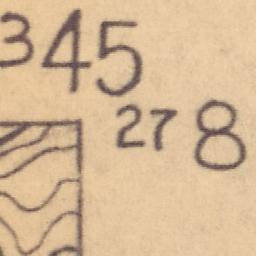 345
27 8